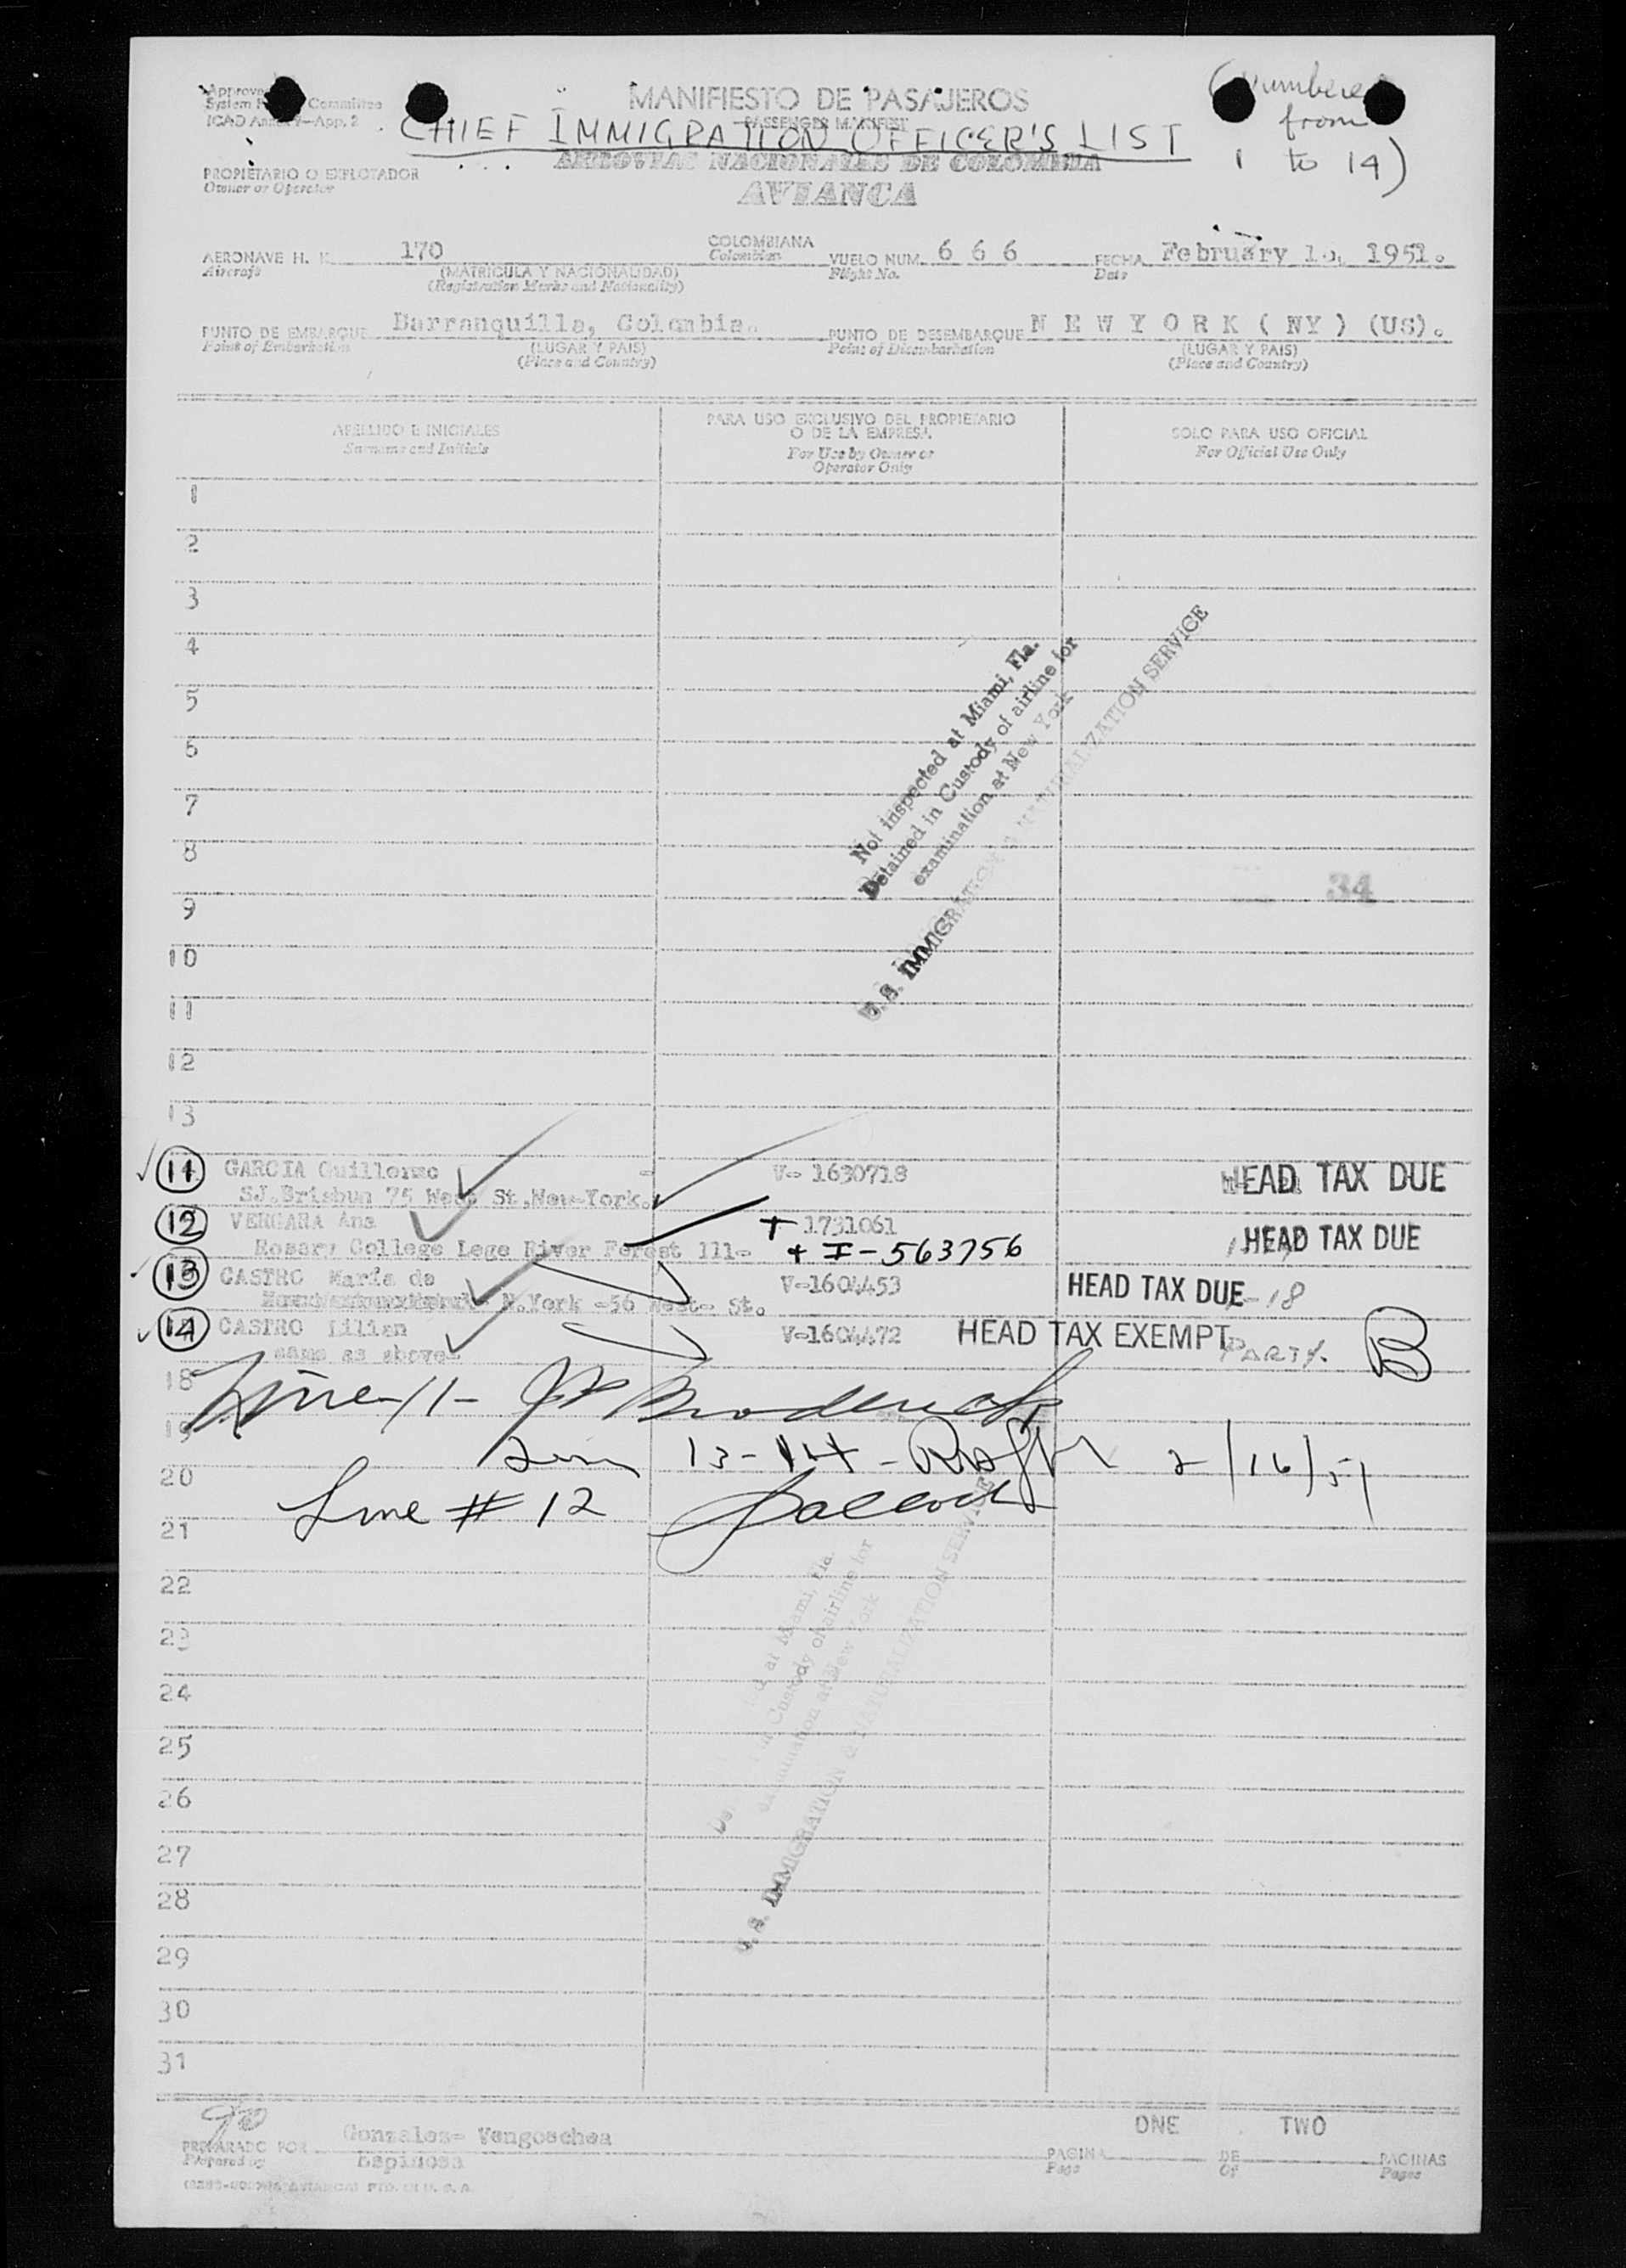 Approve
System Committee
ICAO Annex 9—App. 2
(Numbered
from
1 to 14)
MANIFIESTO DE PASAJEROS
PASSENGER MANIFEST
CHIEF IMMIGRATION OFFICER'S LIST
AEROVIAS NACIONALES DE COLOMBIA
AVIANCA
PROPIETARIO O EXPLOTADOR
Owner or Operator
AERONAVE H. K. 170 COLOMBIANA VUELO NUM. 6 6 6 FECHA February 1o, 1951.
Aircraft (MATRICULA Y NACIONALIDAD) Colombian Flight No. Date
(Registration Marks and Nationality)
PUNTO DE EMBARQUE Barranquilla, Colombia. PUNTO DE DESEMBARQUE N E W Y O R K ( NY ) (US).
Point of Embarkation (LUGAR Y PAIS) Point of Disembarkation (LUGAR Y PAIS)
(Place and Country) (Place and Country)
APELLIDO E INICIALES
Surname and Initials
PARA USO EXCLUSIVO DEL PROPIETARIO
O DE LA EMPRESA.
For Use by Owner or
Operator Only
SOLO PARA USO OFICIAL
For Official Use Only
1
2
3
4
5
6
7
8
9
10
11
12
13
Not inspected at Miami, Fla.
Detained in Custody of airline for
examination at New York
U. S. IMMIGRATION & NATURALIZATION SERVICE
34
11 GARCIA Guillermo - V- 1630718 HEAD TAX DUE
SJ.Brisbun 75 West St,New-York.
12 VERGARA Ana + 1731061 HEAD TAX DUE
Rosary College Lege River Forest Ill- + I-563756
13 CASTRO María de V-1604453 HEAD TAX DUE -18
N.York -56 West- St.
14 CASTRO Lilian V-1604472 HEAD TAX EXEMPT PARTY. B
same as above-
18 Line-11-
19
Line 13-14 - 2/16/51
20
Line # 12
21
22
23
24
25
26
27
28
29
30
31
at Miami, Fla.
Custody of airline for
examination at New York
U. S. IMMIGRATION & NATURALIZATION SERVICE
PREPARADO POR Gonzales- Vengoechea
Prepared by Espinosa
PAGINA ONE DE TWO PAGINAS
Page Of Pages